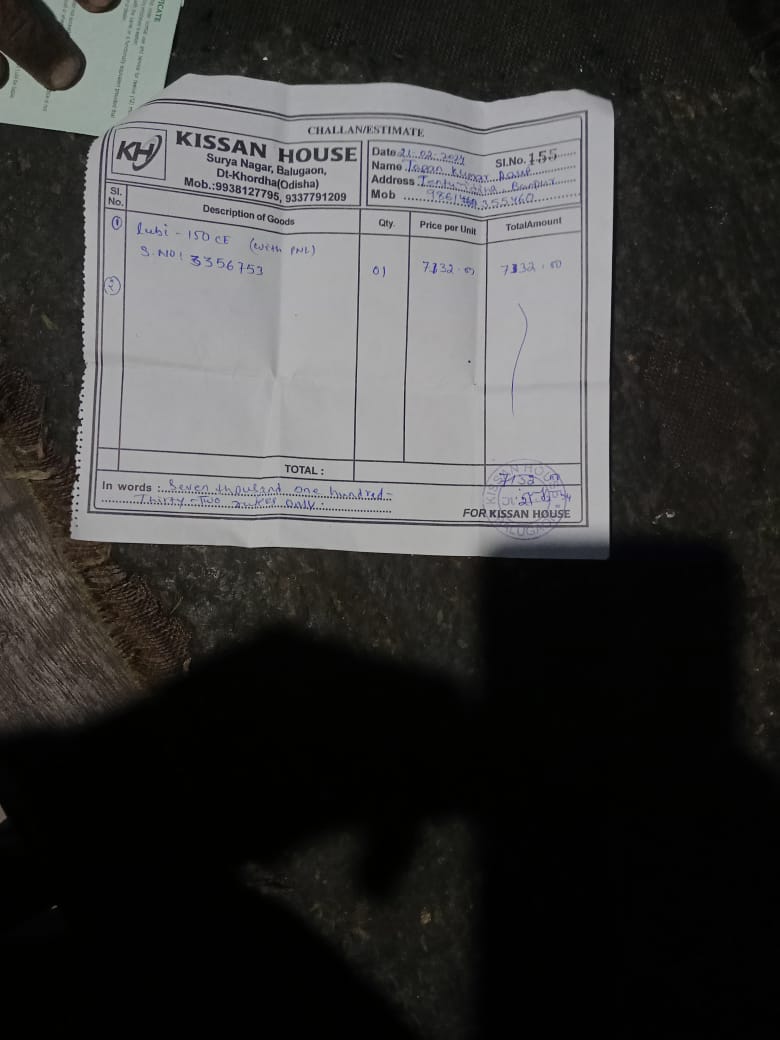 CHALLAN/ESTIMATE
KH
KISSAN HOUSE
Surya Nagar, Balugaon,
Dt-Khordha(Odisha)
Mob.:9938127795, 9337791209
Date 21.02.2024 Sl.No. 155
Name Tapan Kumar
Address Banpur
Mob
Sl. No. Description of Goods Qty. Price per Unit TotalAmount
1 Lubi - 150 CE (with PNL) 
S.NO: 3356753 01 7132.00 7132.00
2
TOTAL : 7132.00
In words : Seven thousand one hundred-
Thirty-Two only
KISSAN HOUSE
FOR KISSAN HOUSE